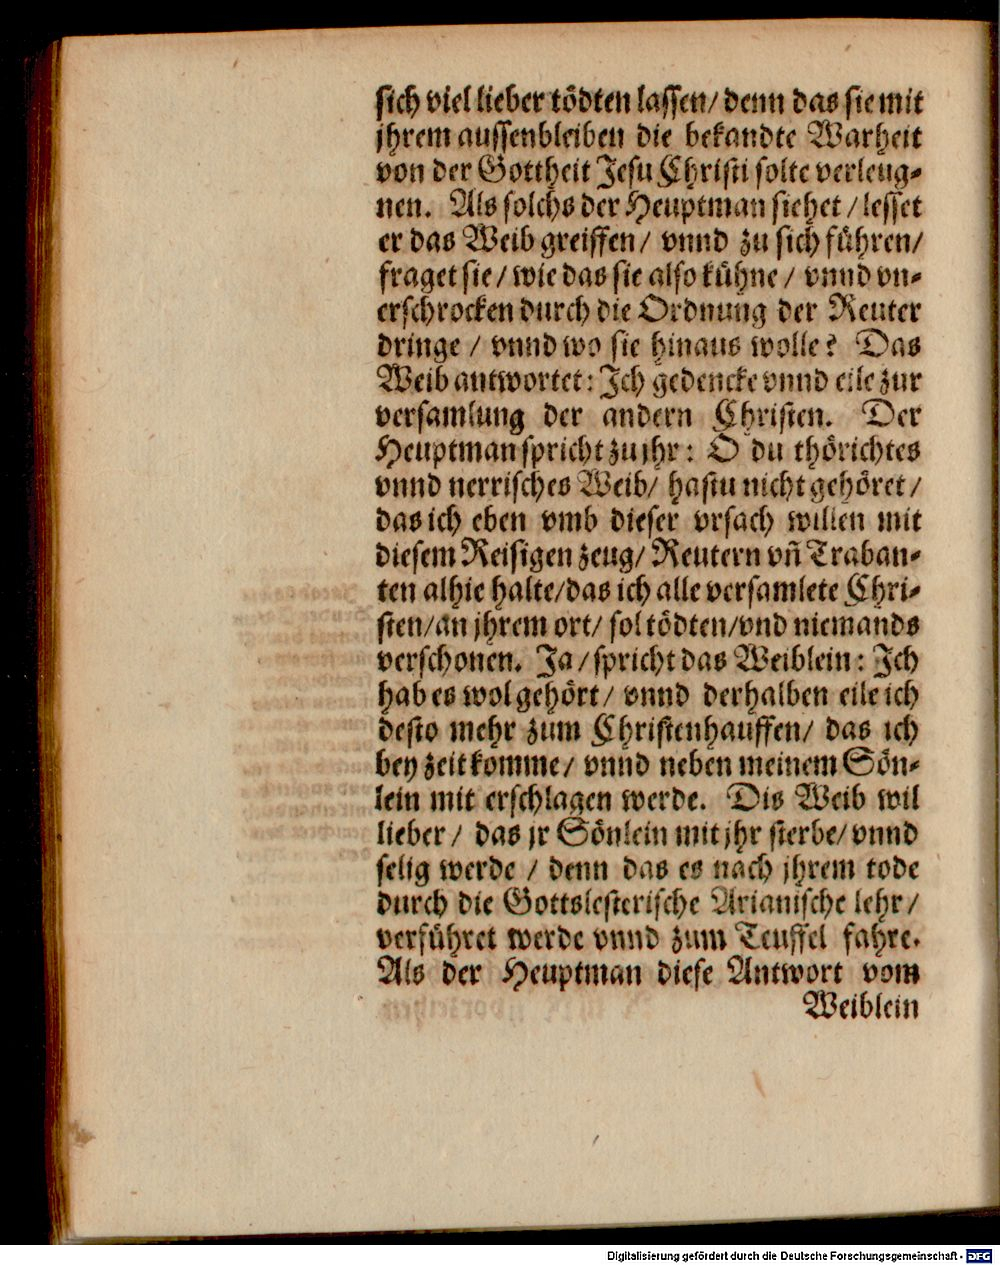 sich viel lieber tödten lassen/ denn das sie mit
jhrem aussenbleiben die bekandte Warheit
von der Gottheit Jesu Christi solte verleug-
nen. Als solchs der Heuptman siehet / lesset
er das Weib greiffen/ vnnd zu sich führen/
fraget sie/ wie das sie also kühne / vnnd vn-
erschrocken durch die Ordnung der Reuter
dringe / vnnd wo sie hinaus wolle? Das
Weib antwortet: Ich gedencke vnnd eile zur
versamlung der andern Christen. Der
Heuptman spricht zu jhr: O du thörichtes
vnnd nerrisches Weib/ hastu nicht gehöret /
das ich eben vmb dieser vrsach willen mit
diesem Reisigen zeug/ Reutern vñ Traban-
ten alhie halte/das ich alle versamlete Chri-
sten/an jhrem ort/ sol tödten/vnd niemands
verschonen. Ja / spricht das Weiblein: Ich
hab es wol gehört/ vnnd derhalben eile ich
desto mehr zum Christenhauffen/ das ich
bey zeit komme/ vnnd neben meinem Sön-
lein mit erschlagen werde. Dis Weib wil
lieber / das jr Sönlein mit jhr sterbe/ vnnd
selig werde / denn das es nach jhrem tode
durch die Gottslesterische Arianische lehr/
verführet werde vnnd zum Teuffel fahre.
Als der Heuptman diese Antwort vom
Weiblein
Digitalisierung gefördert durch die Deutsche Forschungsgemeinschaft - DFG